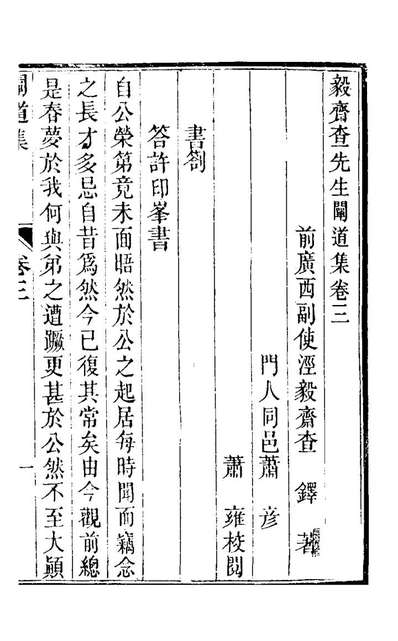 毅齋查先生闡道集卷三
前廣西副使涇毅齋查　鐸　著
門人同邑蕭　彥
蕭　雍校閱
書劄
答許印峯書
自公榮第竟未面晤然於公之起居每時聞而竊念
之長才多忌自昔爲然今已復其常矣由今觀前總
是春夢於我何與弟之遭蹶更甚於公然不至大顚
闡道集
卷三
一